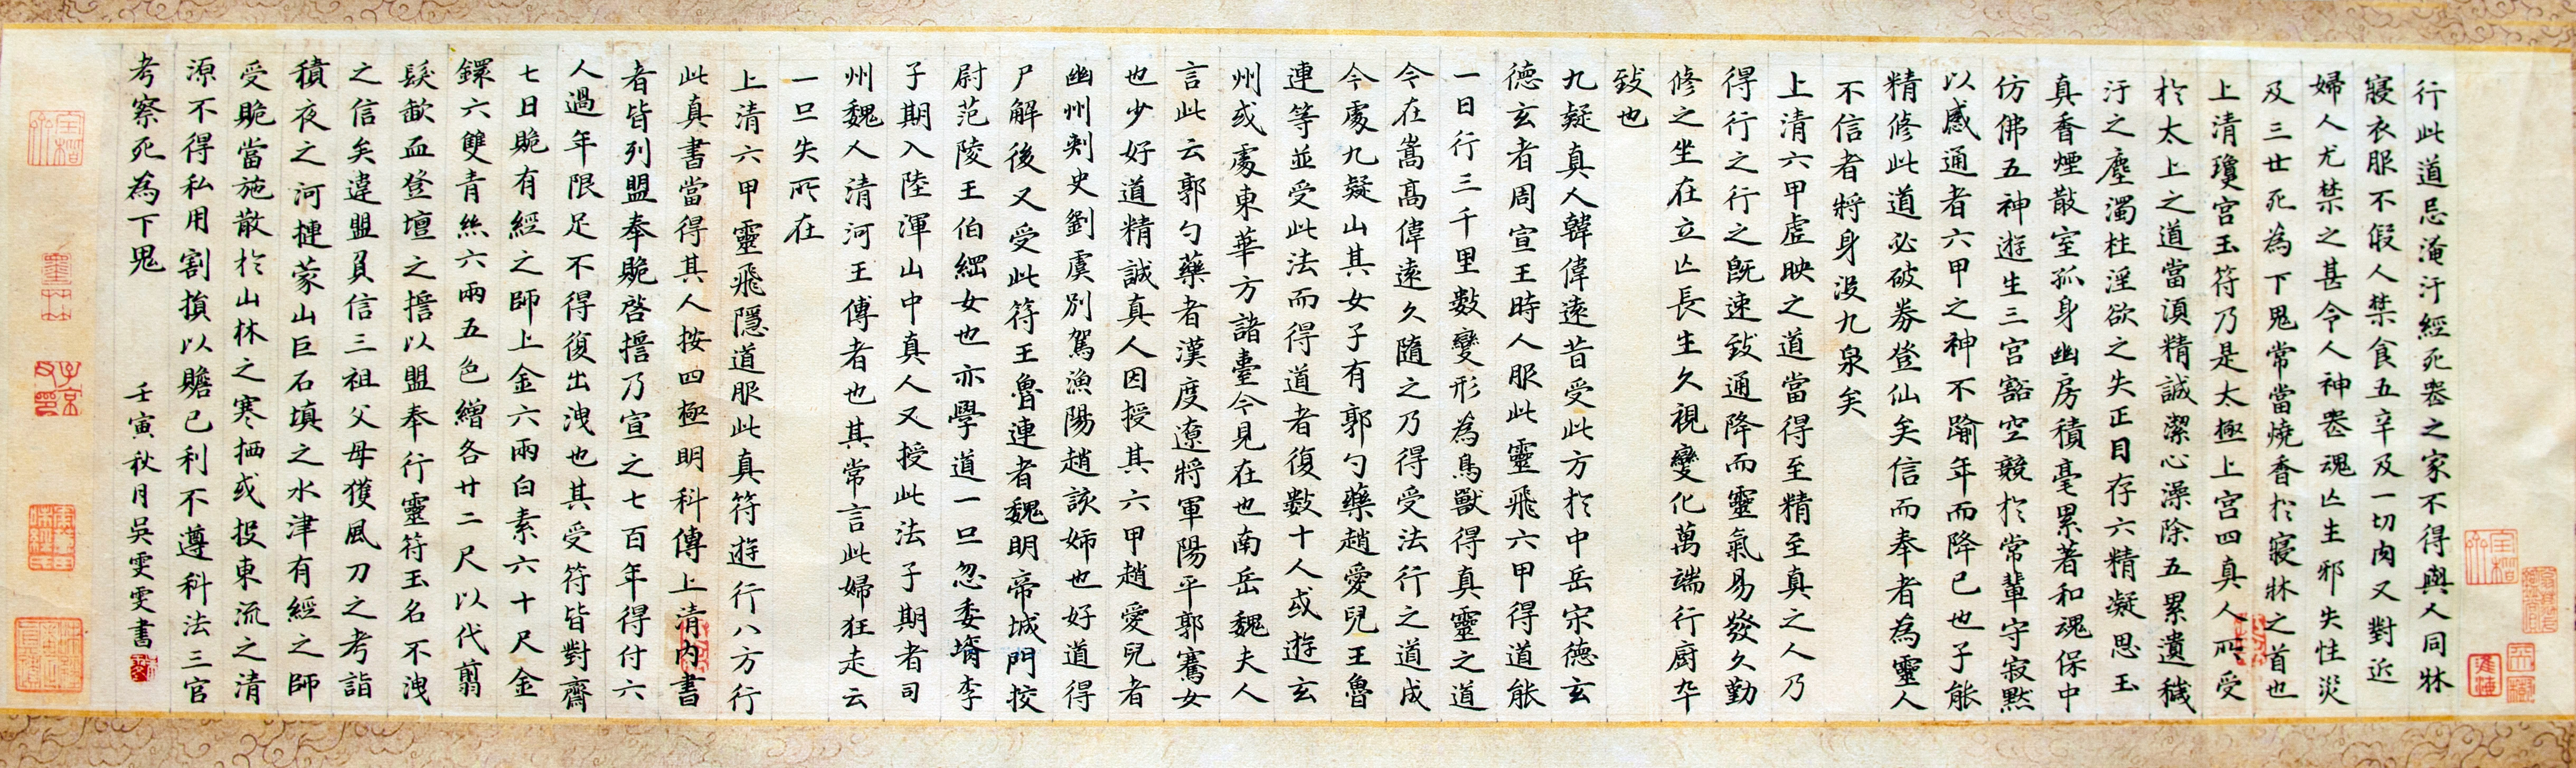 行此道忌淹汙經死喪之家不得與人同牀
寢衣服不假人禁食五辛及一切肉又對近
婦人尤禁之甚令人神喪魂亡生邪失性災
及三世死為下鬼常當燒香於寢牀之首也
上清瓊宮玉符乃是太極上宮四真人所受
於太上之道當須精誠潔心澡除五累遺穢
汙之塵濁杜淫欲之失正目存六精凝思玉
真香煙散室孤身幽房積毫累著和魂保中
仿佛五神遊生三宮豁空競於常輩守寂默
以感通者六甲之神不踰年而降已也子能
精修此道必破券登仙矣信而奉者為靈人
不信者將身沒九泉矣
上清六甲虛映之道當得至精至真之人乃
得行之行之既速致通降而靈氣易發久勤
修之坐在立亡長生久視變化萬端行廚卒
致也
九疑真人韓偉遠昔受此方於中岳宋德玄
德玄者周宣王時人服此靈飛六甲得道能
一日行三千里數變形為鳥獸得真靈之道
今在嵩高偉遠久隨之乃得受法行之道成
今處九疑山其女子有郭勺藥趙愛兒王魯
連等並受此法而得道者復數十人或遊玄
州或處東華方諸臺今見在也南岳魏夫人
言此云郭勺藥者漢度遼將軍陽平郭騫女
也少好道精誠真人因授其六甲趙愛兒者
幽州刺史劉虞別駕漁陽趙該姊也好道得
尸解後又受此符王魯連者魏明帝城門挍
尉范陵王伯綱女也亦學道一旦忽委壻李
子期入陸渾山中真人又授此法子期者司
州魏人清河王傳者也其常言此婦狂走云
一旦失所在
上清六甲靈飛隱道服此真符遊行八方行
此真書當得其人按四極明科傳上清內書
者皆列盟奉賝啓擔乃宣之七百年得付六
人過年限足不得復出洩也其受符皆對齊
七日賝有經之師上金六兩白素六十尺金
鐶六雙青絲六兩五色繒各廿二尺以代翦
髮歃血登壇之擔以盟奉行靈符玉名不洩
之信矣違盟負信三祖父母獲風刀之考詣
積夜之河摙蒙山巨石填之水津有經之師
受賝當施散於山林之寒栖或投東流之清
源不得私用割損以贍己利不遵科法三官
考察死為下鬼
壬寅秋月吳雯雯書